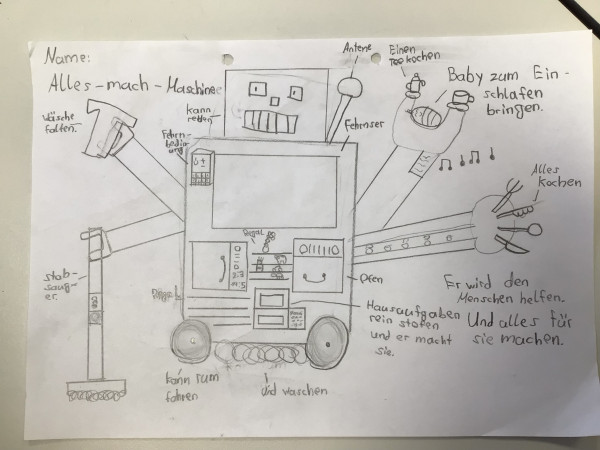 Name:
Alles-mach-Maschine
Antene
Einen
Tee kochen
Baby zum Ein-
schlafen
bringen.
Wäsche
falten.
kann
reden
Fehrn-
bedin
ung
Fehrnser
Alles
kochen
Regal
0111110
Ofen
stob-
saug-
er.
Regal
Hausaufgaben
rein stofen
und er macht
sie.
Er wird den
Menschen helfen.
Und alles für
sie machen.
kann rum
fahren
und waschen